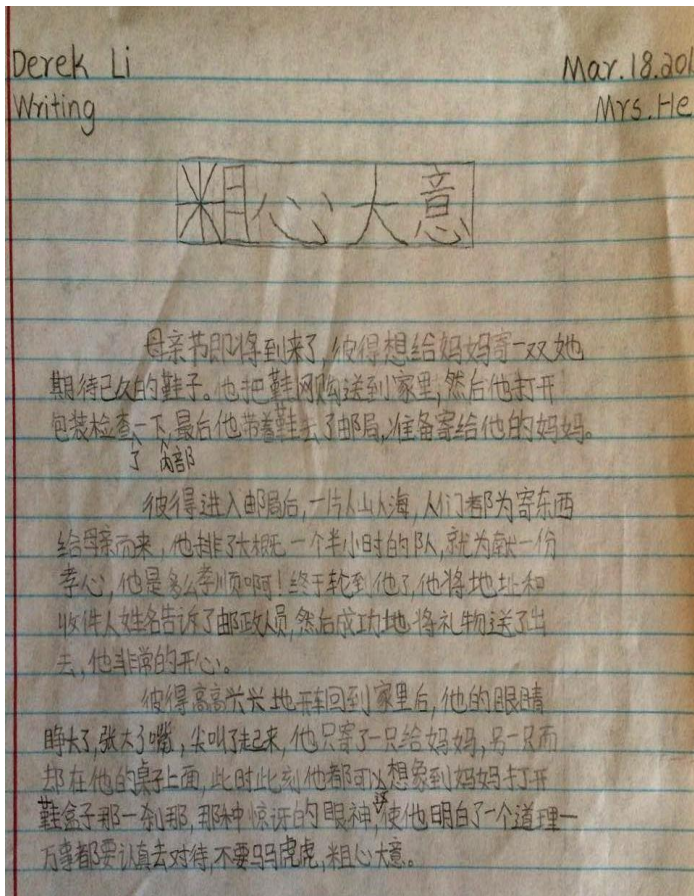 Derek Li
Mar.18.201
Writing
Mrs.He
粗心大意
母亲节即将到来了,彼得想给妈妈寄一双她
期待已久的鞋子。他把鞋网购送到家里,然后他打开
包装检查一下,最后他带着鞋去了邮局,准备寄给他的妈妈。
了 内部
彼得进入邮局后,一片人山人海,人们都为寄东西
给母亲而来,他排了大概一个半小时的队,就为献一份
孝心,他是多么孝顺啊!终于轮到他了,他将地址和
收件人姓名告诉了邮政人员,然后成功地将礼物送了出
去,他非常的开心。
彼得高高兴兴地开车回到家里后,他的眼睛
睁大了,张大了嘴,尖叫了起来,他只寄了一只给妈妈,另一只而
却在他的桌子上面,此时此刻他都可以想象到妈妈打开
鞋盒子那一刹那,那种惊讶的眼神,使他明白了一个道理一
万事都要认真去对待,不要马马虎虎,粗心大意。